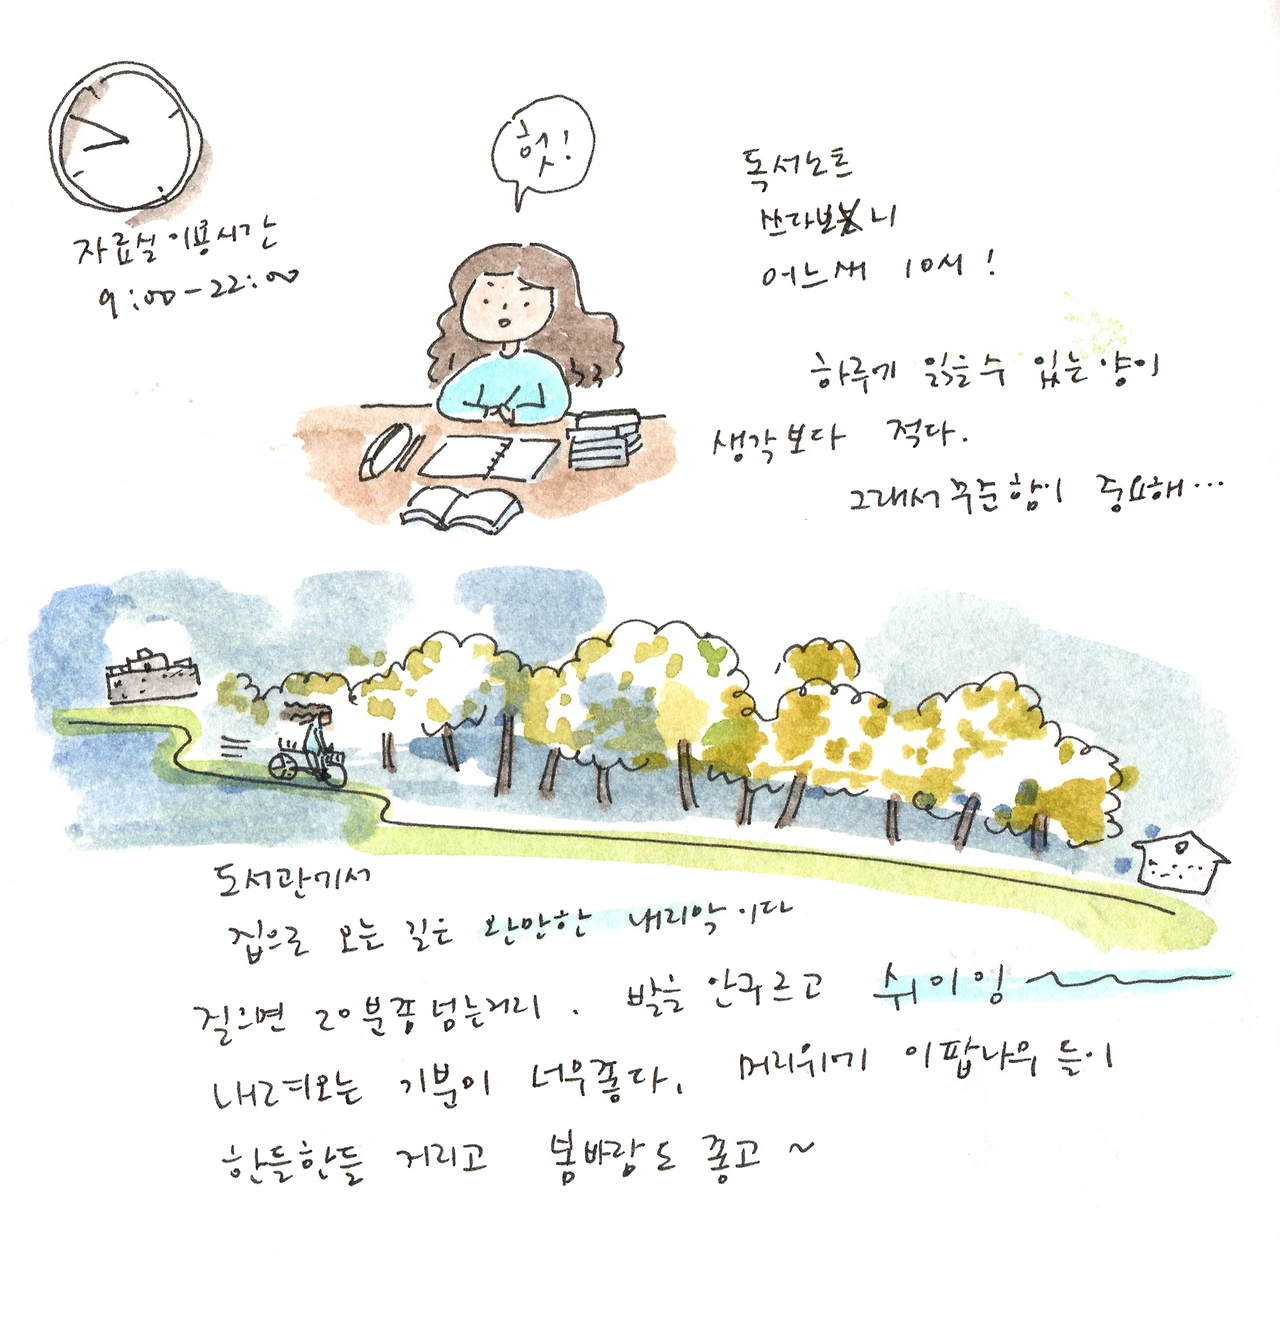 자료실 이용시간
9:00-22:00
헛!
독서노트
쓰다보니
어느새 10시!
하루에 읽을 수 있는 양이
생각보다 적다.
그래서 꾸준함이 중요해...
도서관에서
집으로 오는 길은 완만한 내리막이다
걸으면 20분쯤 넘는거리. 발을 안구르고 쉬이잉
내려오는 기분이 너무 좋다. 머리위에 이팝나무들이
한들한들 거리고 봄바람도 좋고~